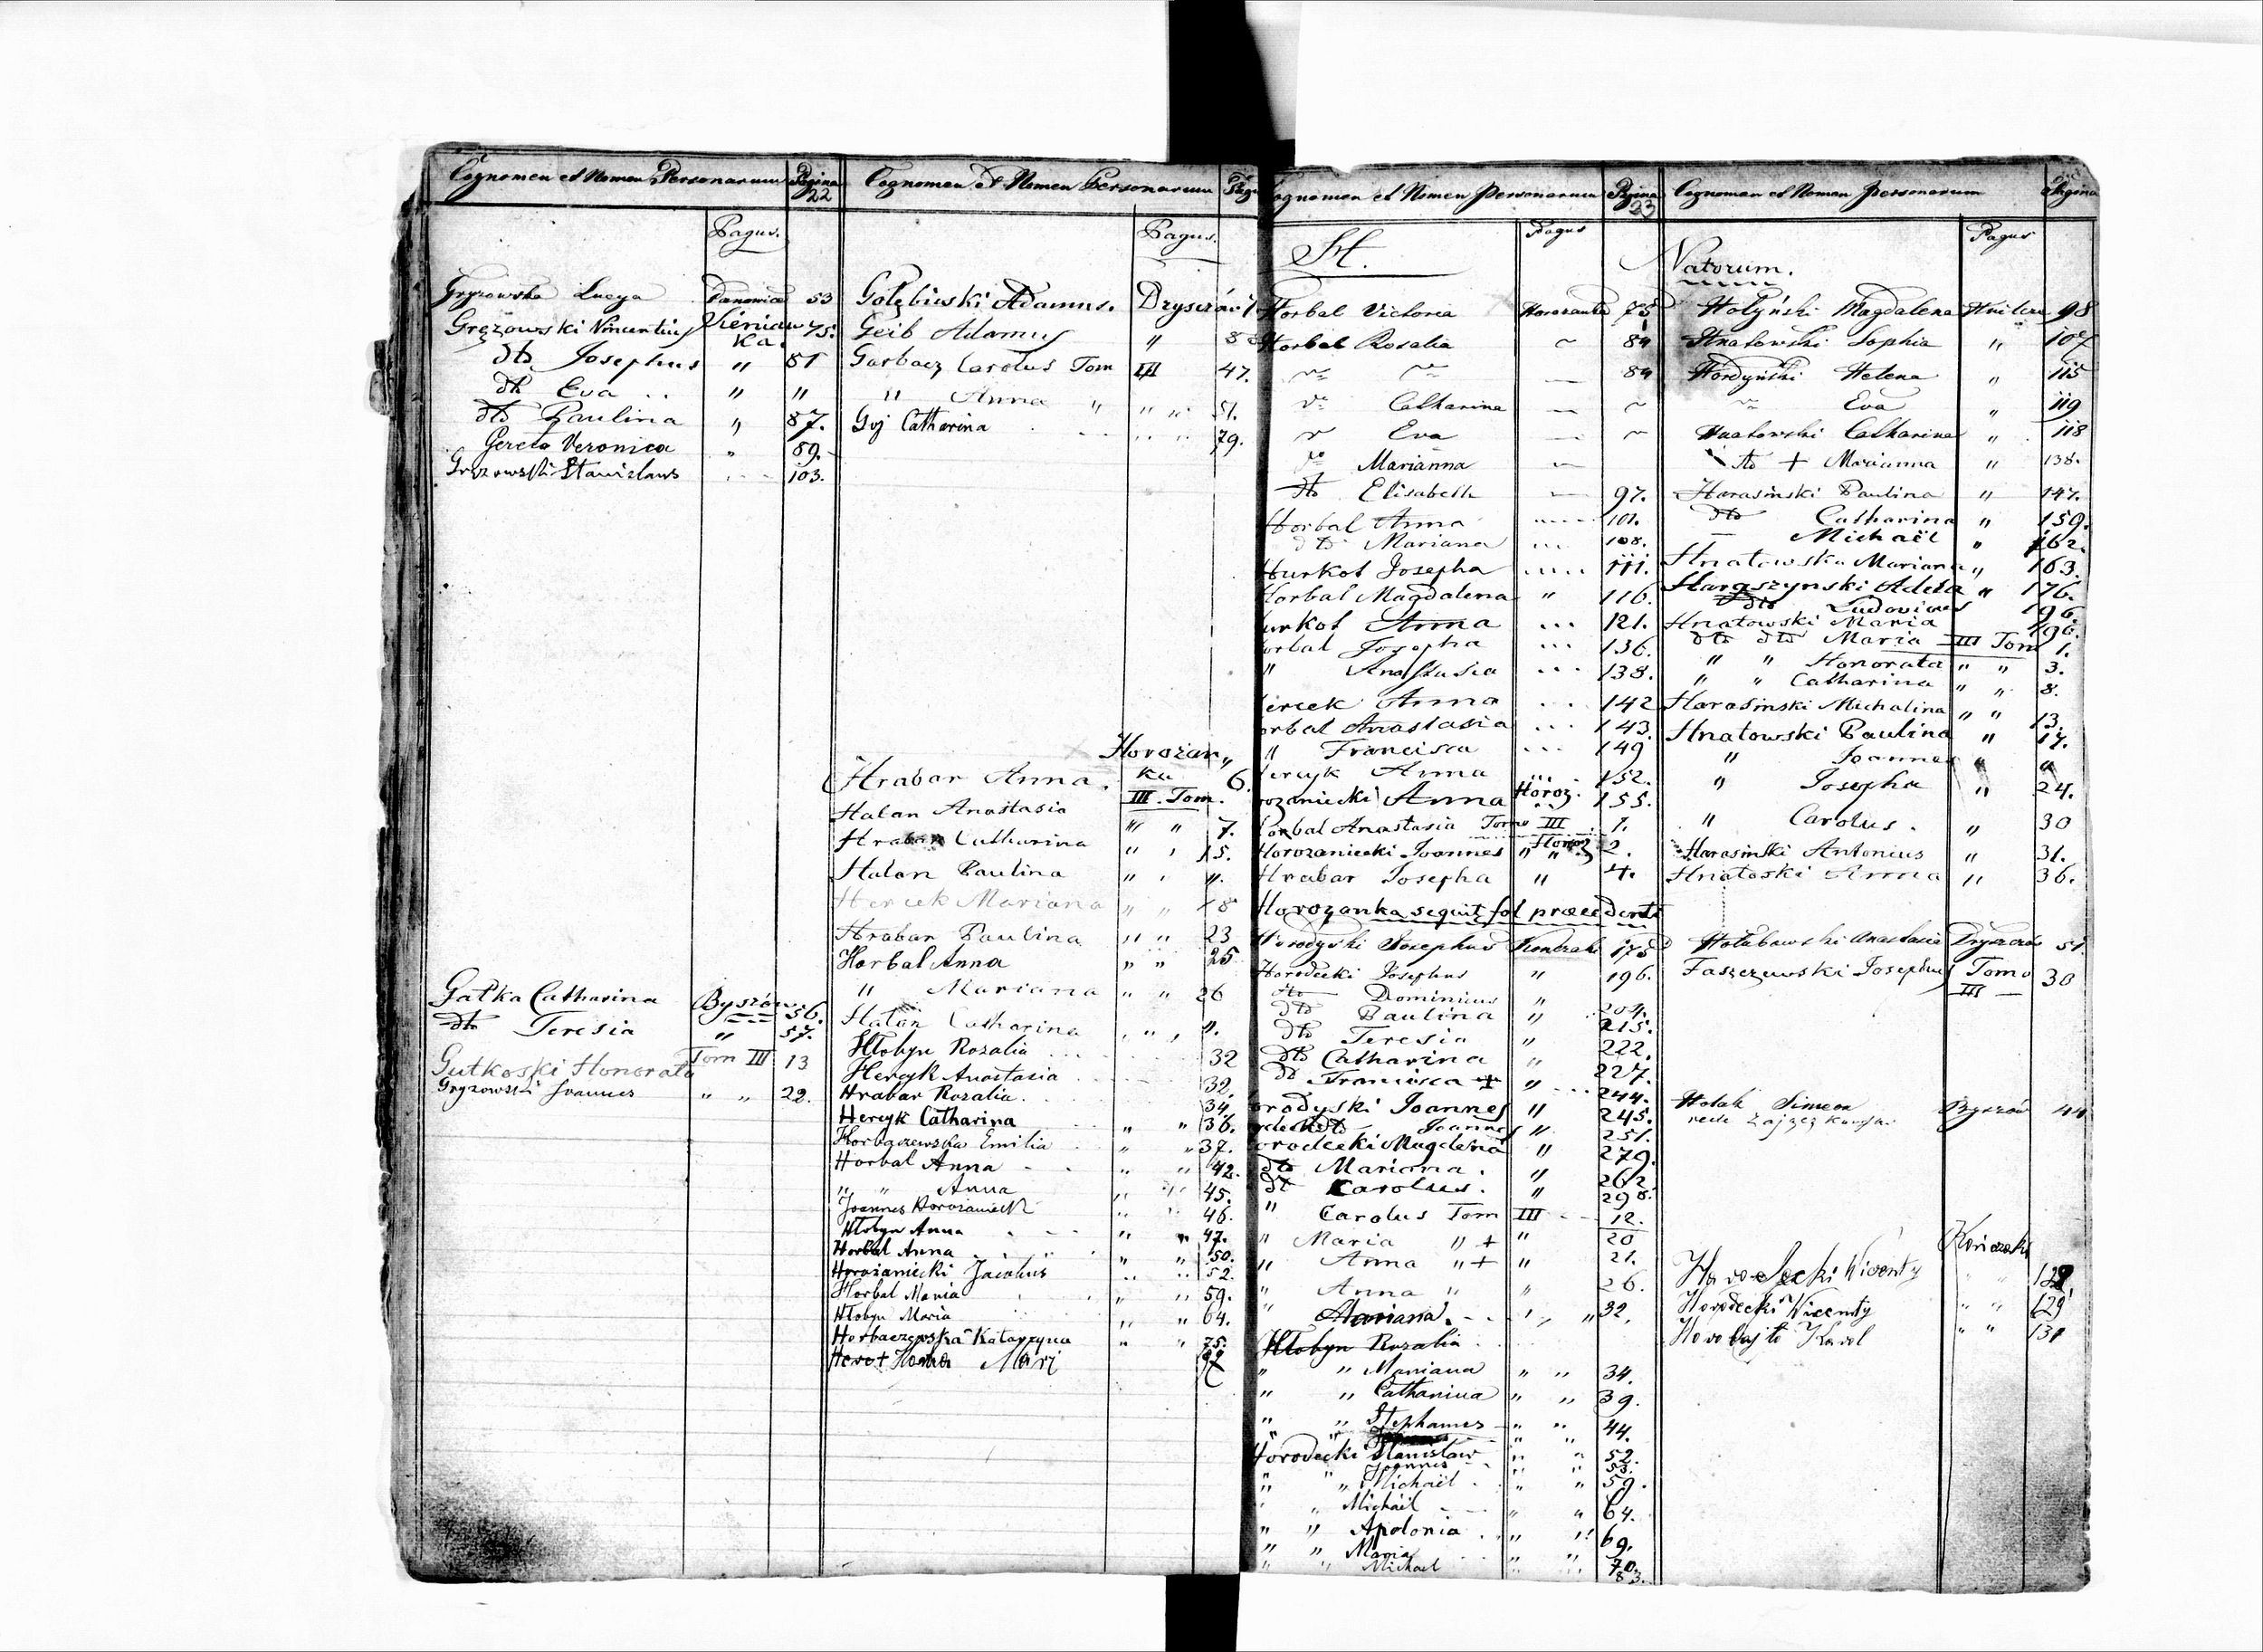 Cognomen et Nomen Personarum Pagina 22
Pagus.
Gryzowska Lucya 53
Gręzowski Vincentius Sieniawka. 75.
dto Josephus " 81
dto Eva " "
dto Paulina " 87.
Gereta Veronica " 89.
Stanislaus 103.
Gałka Catharina Byszów 56.
dto Teresia " 57.
Gutkoski Honorata Tom III 13
Gryzowski Joannes " " 22.
Cognomen et Nomen Personarum
Pagus.
Gołębiwski Adamus. Dryszczów
Geib Adamus "
Garbacz Carolus Tom III 47.
" Anna " " " 51.
Goj Catharina 79.
Horożan„
Hrabar Anna. ka 6.
III. Tom.
Halan Anastasia " " 7.
Hrabar Catharina " " 15.
Halan Paulina " " ".
Hercek Mariana " " 18
Hrabar Paulina " " 23
Horbal Anna " " 25
" Mariana " " 26
Halan Catharina " " ".
Hłobyn Rozalia 32
Hercyk Anastasia 32.
Hrabar Rozalia 34.
Hercyk Catharina " " 36.
Horbaczewska Emilia " " 37.
Horbal Anna " " 42.
" " Anna " " 45.
Joannes Horożaniecki " " 46.
Hłobyn Anna " " 47.
Horbal Anna " " 50.
Horożaniecki Jacobus " " 52.
Horbal Maria " " 59.
Hłobyn Maria " " 64.
Horbaczewska Katarzyna " " 75.
Cognomen et Nomen Personarum Pagina 23
H. Pagus
Horbal Victoria Horozanka 75
Horbal Rosalia 84
84
Catharina
Eva
Marianna
dto Elisabeth 97.
Horbal Anna 101.
dto Mariana 108.
Hurkot Josepha 111.
Horbal Magdalena " 116.
Hurkot Anna 121.
Horbal Josepha 136.
" Anastasia 138.
Hercek Anna 142
Horbal Anastasia 143.
" Francisca 149
Hercyk Anna 152.
Horozaniecki Anna Horoż. 155.
Horbal Anastasia Tomo III 1.
Horozaniecki Joannes " " Horoż 2.
Hrabar Josepha " 4.
Horozanka sequit fol praecedenti
Horodyski Josephus 175
Horodecki Josephus " 196.
dto Dominicus " 204.
dto Paulina " 215.
dto Teresia " 222.
dto Catharina " 227.
dto Francisca + " 244.
Horodyski Joannes " 245.
Joannes " 251.
Horodecki Magdalena " 279.
dto Mariana. " 262.
dto Carolus. " 298.
" Carolus Tom III 12.
" Maria " + " 20
" Anna " + " 21.
" Anna " " 26.
" Mariana. " " 32.
Hłobyn Rozalia
" " Mariana " " 34.
" " Catharina " " 39.
" " Stephanus " " 44.
Horodecki Stanisław " " 52.
" " Joannes " " 53.
" " Michaël " " 59.
" " Michaël " 64.
" " Apolonia " " 69.
" " Maria " " 70.
" " Michael " " 83.
Cognomen et Nomen Personarum Pagina
Natorum. Pagus
Hołyński Magdalena 98
Hnatowski Sophia " 107
Hordyński Helena " 115
Eva " 119
Hnatowski Catharina " 118
dto + Marianna " 138.
Harasiński Paulina " 147.
dto Catharina " 159.
Michaël " 162.
Hnatowska Mariana " 163.
Haraszynski Adela " 176.
dto Ludovicus 196.
Hnatowski Maria 196.
dto dto Maria III Tom 1.
" " Honorata " " 3.
" " Catharina " " 8.
Harasinski Michalina " " 13.
Hnatowski Paulina " 17.
" Joannes " "
" Josepha " 24.
" Carolus. " 30
Harasinski Antonius " 31.
Hnatoski Anna " 36.
Hołubowski Anastasia Dryszczów 51.
Faszczewski Josephus Tomo III 30
Hołak Simeon Byszów 44
recte Zajączkowski.
Kończaki
Horodecki Wicenty 128
Horodecki Wicenty " " 129
Karol " " 131